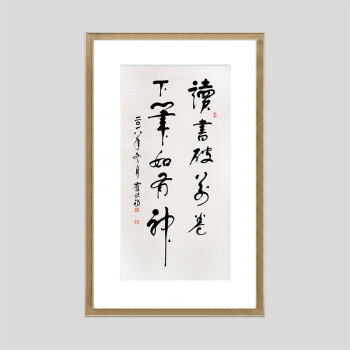 讀書破萬卷
下筆如有神
二〇一八年冬月